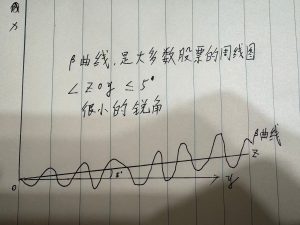 β曲线，是大多数股票的周线图
∠ZOy ≤ 5°
很小的锐角
β曲线
Z
5°
y
O